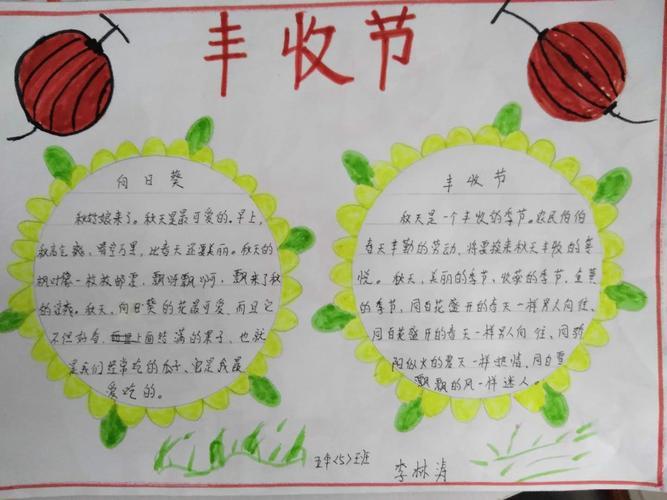 丰收节
向日葵
秋姑娘来了。秋天是最可爱的。早上,
秋高气爽、晴空万里,比春天还要美丽。秋天的
枫叶像一枚枚邮票,飘呀飘啊,飘来了秋
的凉爽。秋天,向日葵的花最可爱,而且它
不但好看 上面结满的果子,也就
是我们经常吃的瓜子,也是我最
爱吃的。
丰收节
秋天是一个丰收的季节。农民伯伯
春天辛勤的劳动,将要接来秋天丰收的喜
悦。秋天,美丽的季节,收获的季节,金黄
的季节,同百花盛开的春天一样另人向往、
同百花盛开的春天一样另人向往、同骄
阳似火的夏天一样热情、同白雪
飘飘的风一样迷人。
五年〈5〉班
李林涛